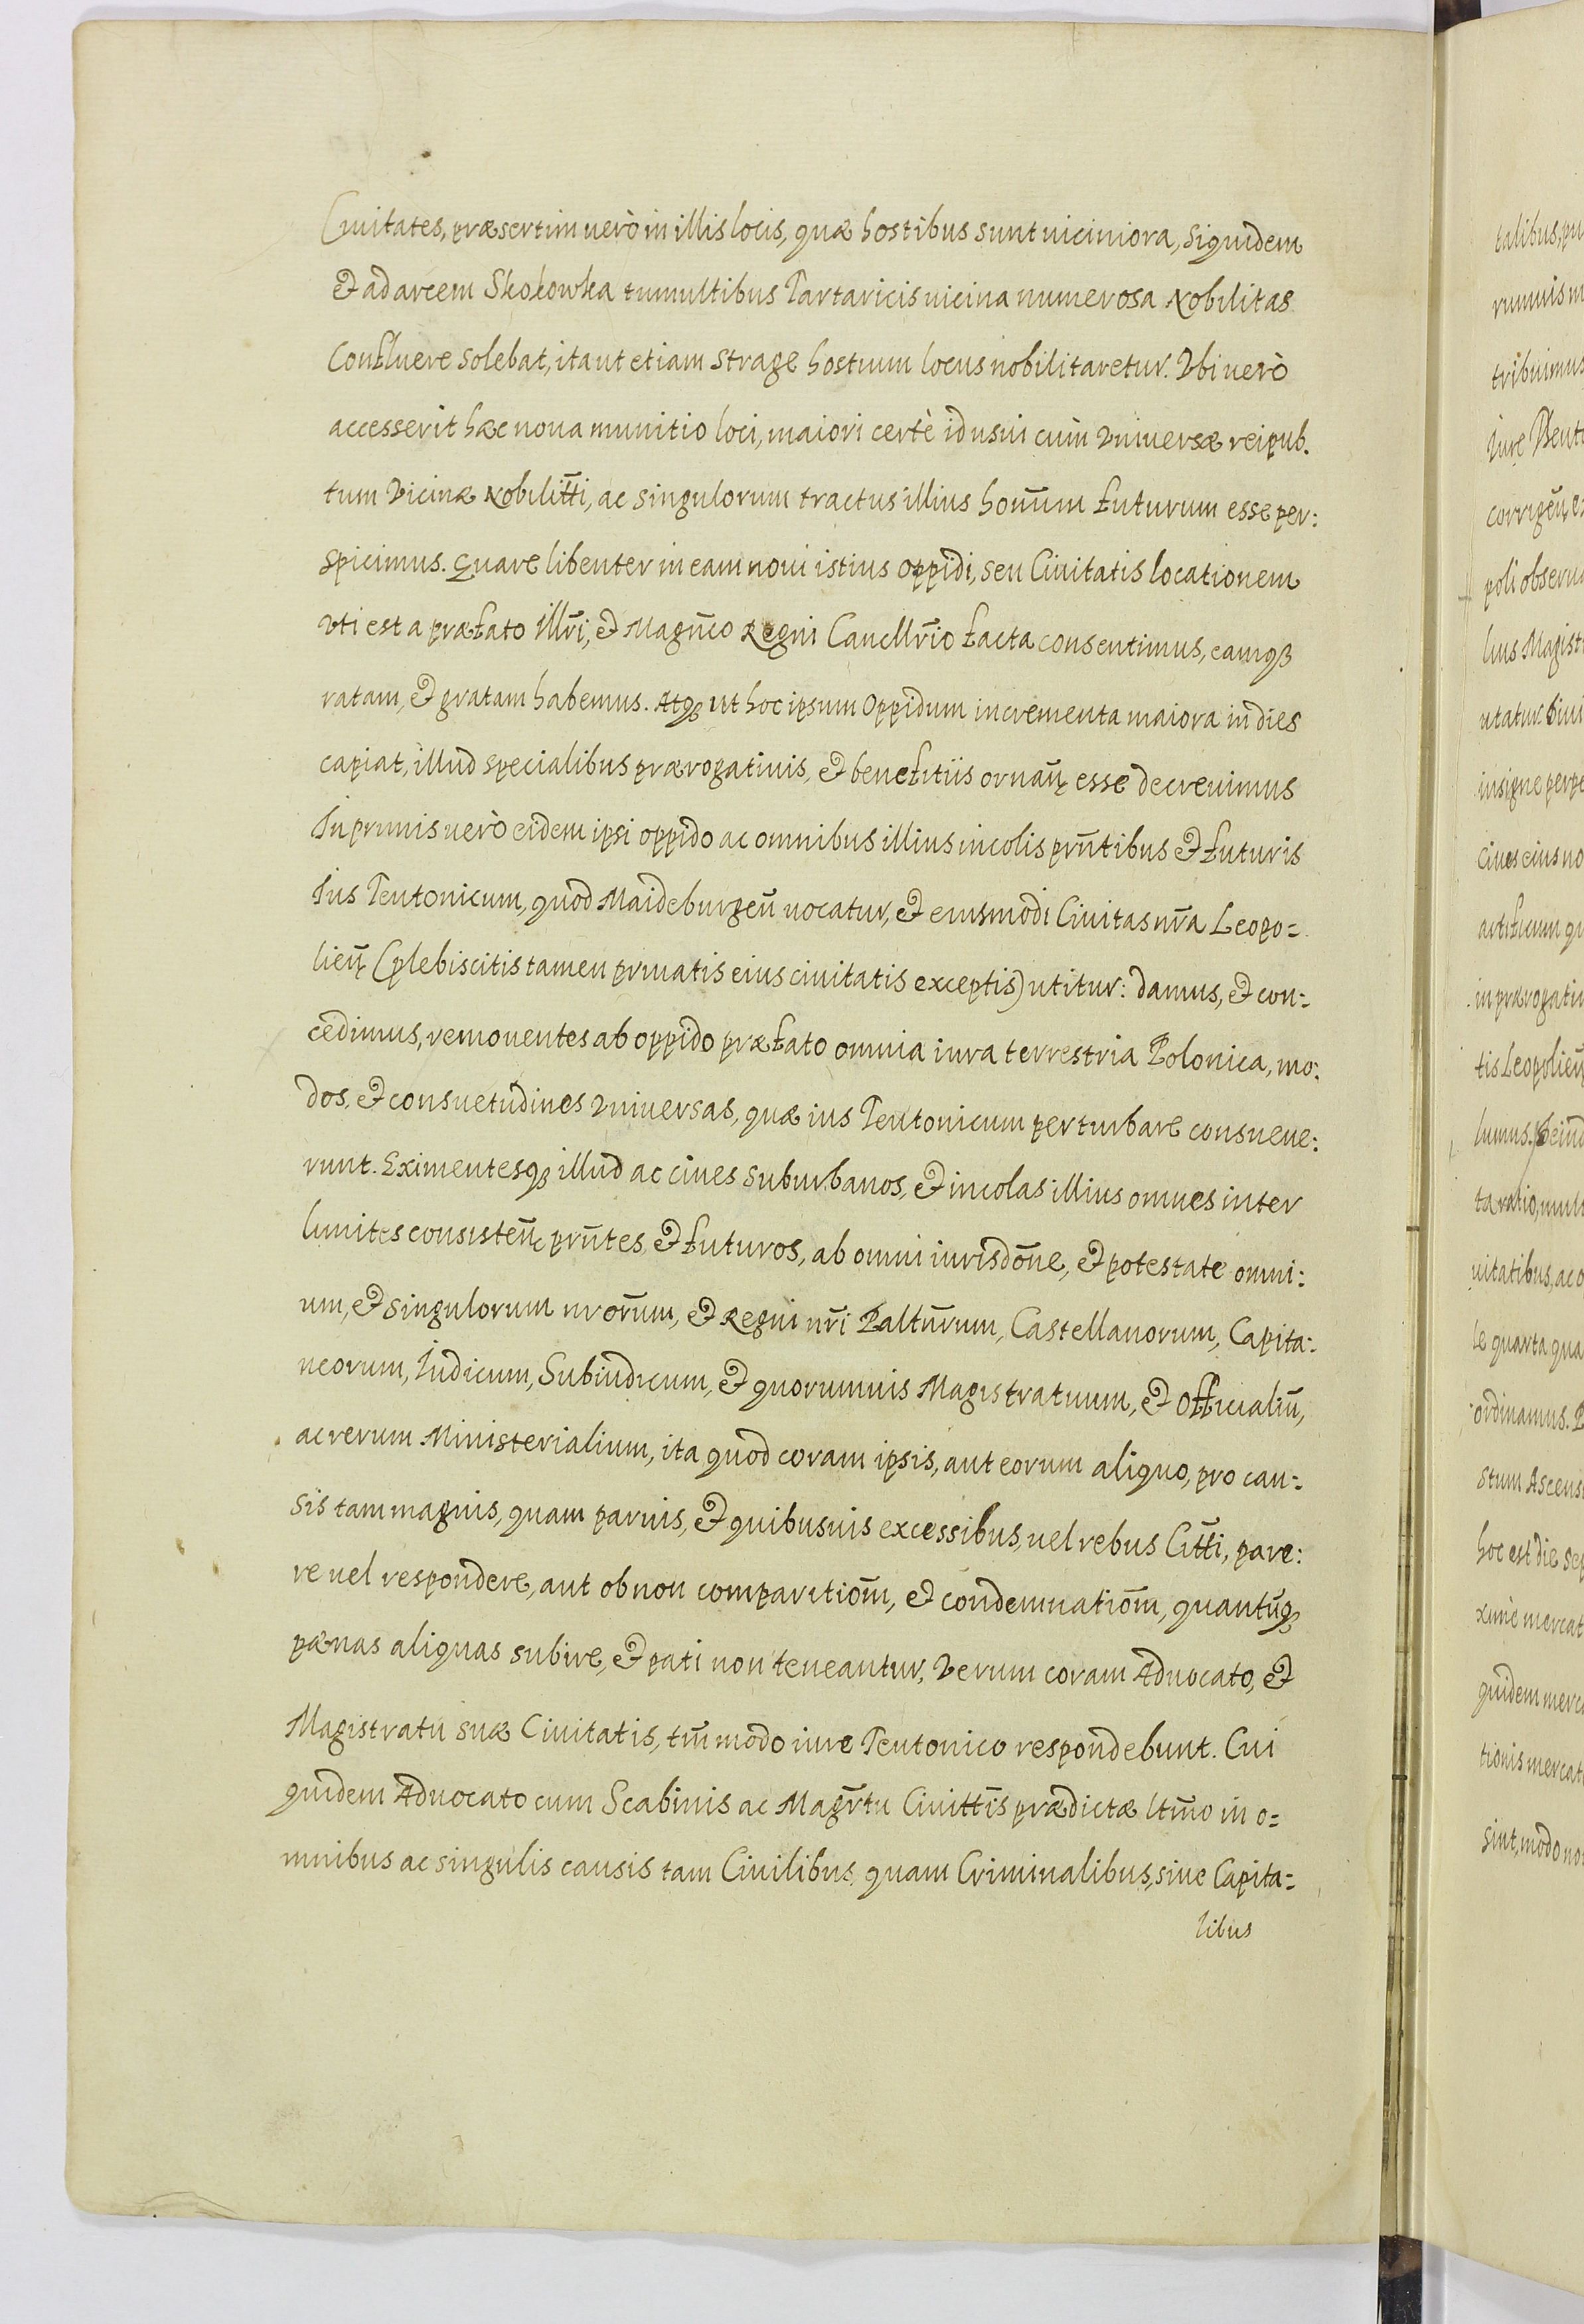 Ciuitates, præsertim uerò in illis locis, quæ hostibus sunt uiciniora, siquidem
et ad arcem Skokowka tumultibus Tartaricis uicina numerosa Nobilitas
confluere solebat, ita ut etiam strage hostium locus nobilitaretur. Vbi uerò
accesserit hæc noua munitio loci, maiori certè id usui cum Vniuersæ reipub.
tum Vicinæ Nobilitti, ac singulorum tractus illius hominum futurum esse per:
spicimus. Quare libenter in eam noui istius oppidi, seu Ciuitatis locationem
Vti est a præfato Illri, et Magnco Regni Cancllrio facta consentimus, eamqȝ
ratam, et gratam habemus. Atqȝ ut hoc ipsum Oppidum incrementa maiora in dies
capiat, illud specialibus prærogatiuis, et benefitiis ornan̄ esse decreuimus
Inprimis uerò eidem ipsi oppido ac omnibus illius incolis prn̄tibus et futuris
Ius Teutonicum, quod Maideburgen̄ uocatur, et eiusmodi Ciuitas nr̄a Leopo=
lien̄ (plebiscitis tamen priuatis eius ciuitatis exceptis) utitur: damus, et con=
cedimus, remouentes ab oppido præfato omnia iura terrestria Polonica, mo:
dos, et consuetudines Vniuersas, quæ ius Teutonicum perturbare consueue:
runt. Eximentesqȝ illud ac ciues suburbanos, et incolas illius omnes inter
limites consisten̄ prn̄tes, et futuros, ab omni iurisdōne, et potestate omni:
um, et singulorum nrorum, et Regni nr̄i Paltn̄rum, Castellanorum, Capita:
neorum, Iudicum, Subiudicum, et quorumuis Magistratuum, et Officialiū,
ac rerum Ministerialium, ita quod coram ipsis, aut eorum aliquo, pro cau=
sis tam magnis, quam paruis, et quibusuis excessibus, uel rebus Citti, pare:
re uel respondere, aut ob non comparitiom̄, et condemnatiom̄, quantūqȝ
pænas aliquas subire, et pati non teneantur, Verum coram Aduocato, et
Magistratu suæ Ciuitatis, tm̄modo iure Teutonico respondebunt. Cui
quidem Aduocato cum Scabinis ac Magr̄tu Ciuittis prædictæ ltm̄o in o=
mnibus ac singulis causis tam Ciuilibus, quam Criminalibus, siue Capita=
libus